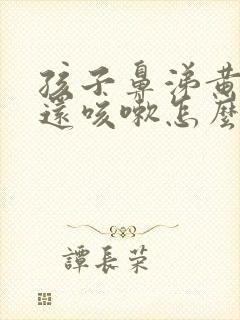 孩子鼻涕黄
還咳嗽怎麼
譚長荣